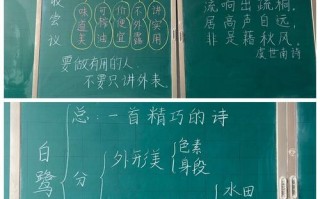 收会议
味道美
可榨油
价便宜
不外露
讲实用
要做有用的人
不要只讲外表
流响出疏桐。
居高声自远,
非是藉秋风。
虞世南诗
总:一首精巧的诗
白鹭
分
外形美
色素
身段
水田